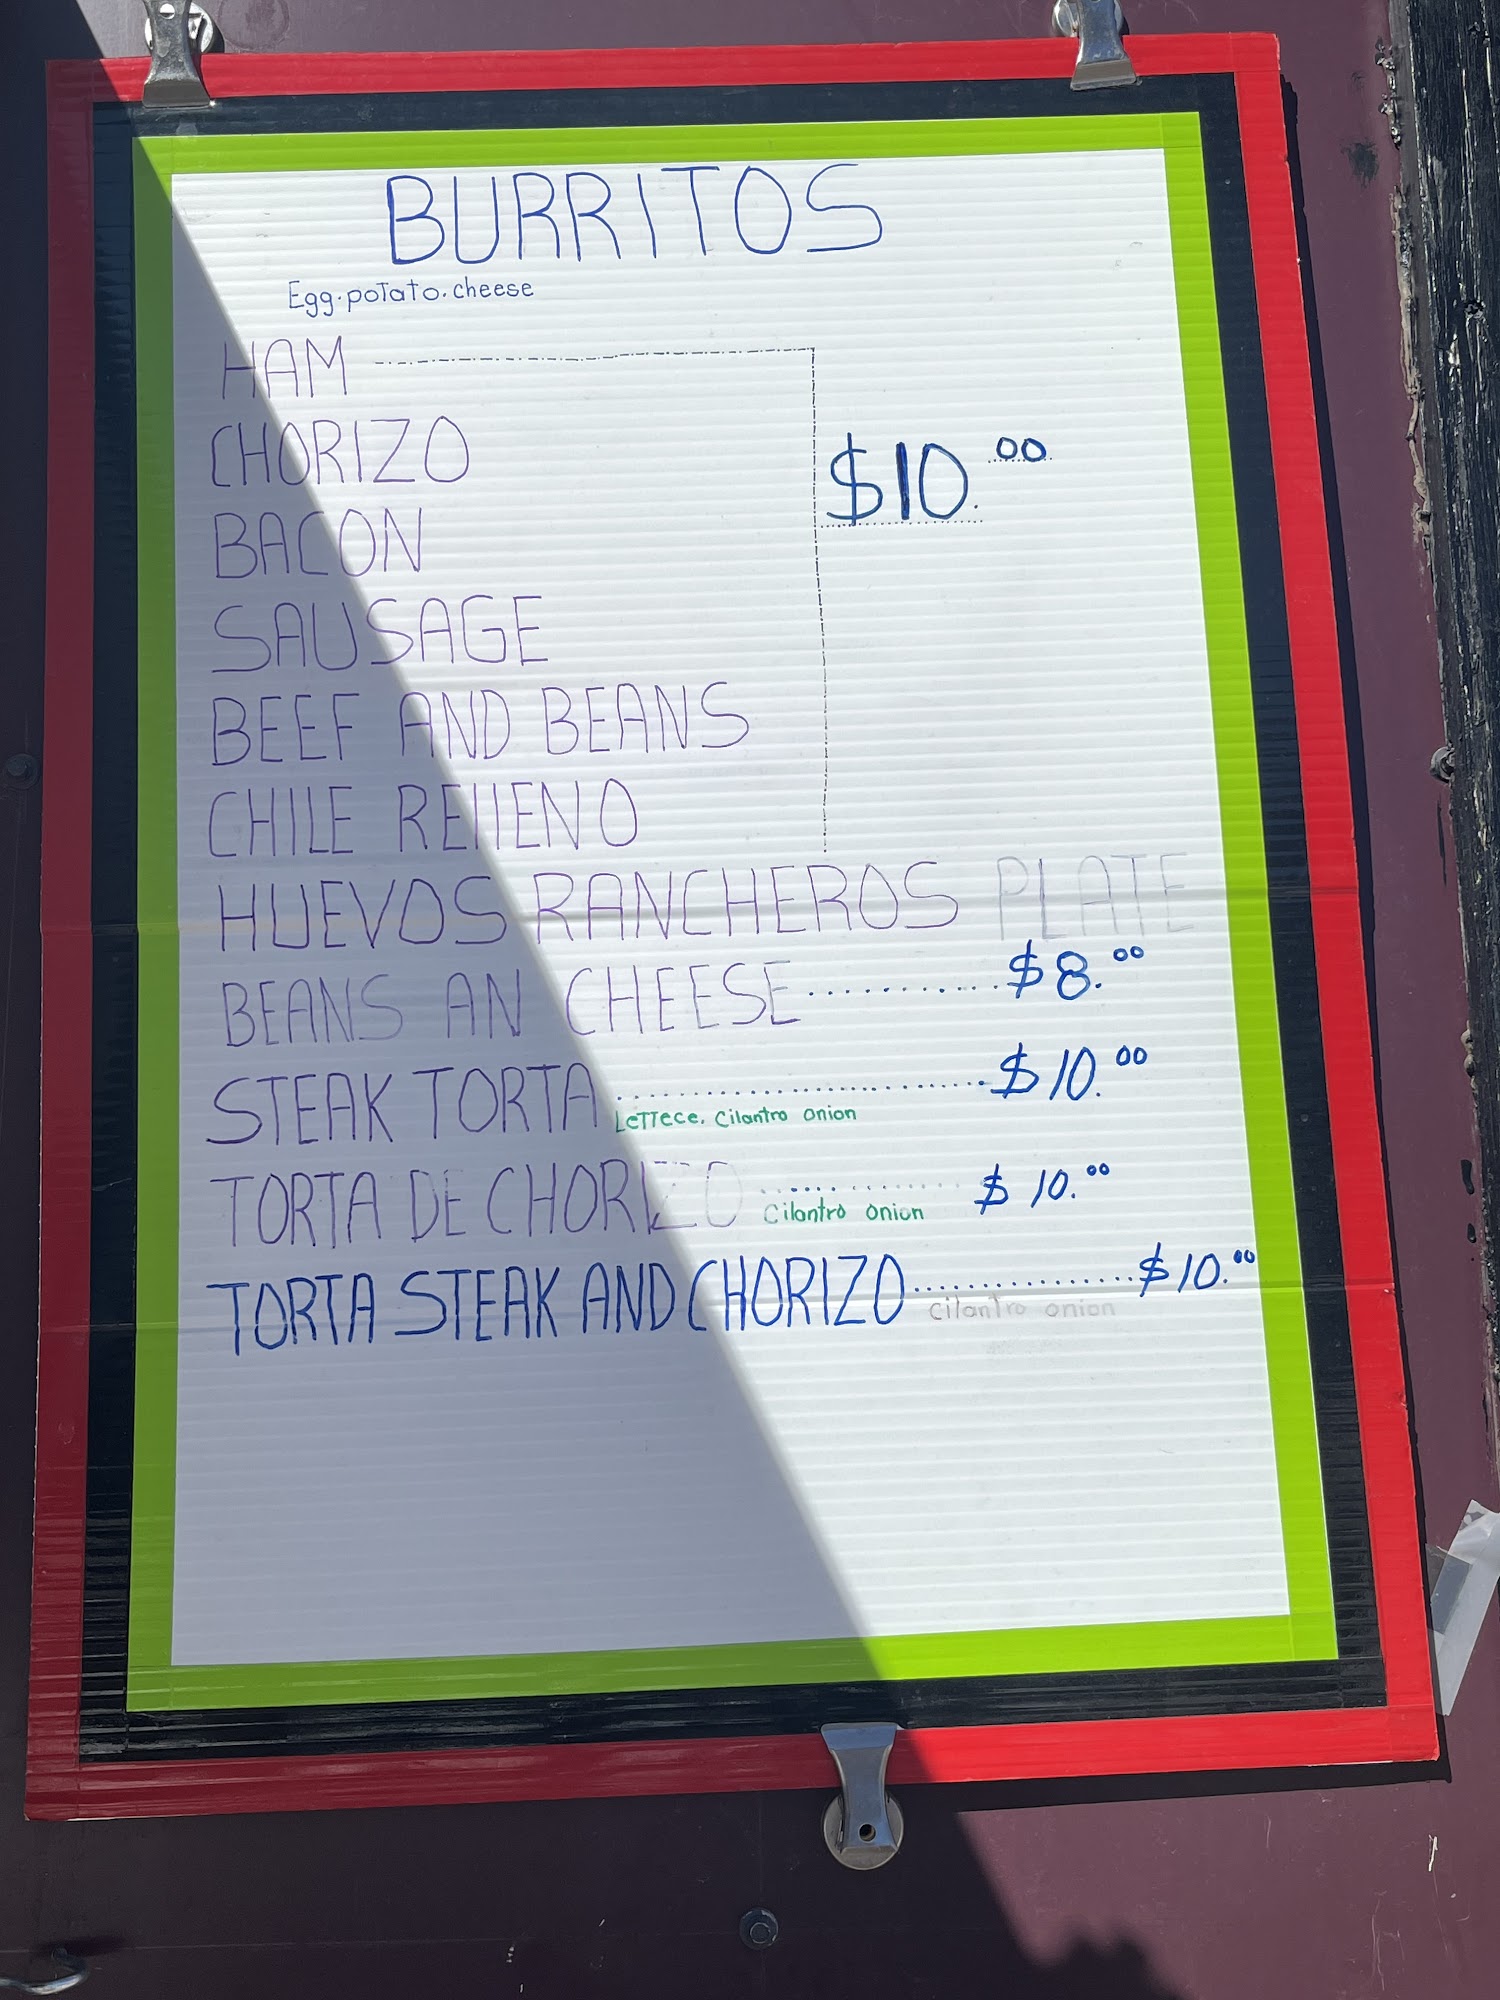 BURRITOS
Egg.potato.cheese
HAM
CHORIZO
$10.00
BACON
SAUSAGE
BEEF AND BEANS
CHILE RELLENO
HUEVOS RANCHEROS PLATE
BEANS AN CHEESE..........$8.00
STEAK TORTA..........$10.00
Lettece. Cilantro onion
TORTA DE CHORIZO..........$10.00
Cilantro onion
TORTA STEAK AND CHORIZO..........$10.00
Cilantro onion